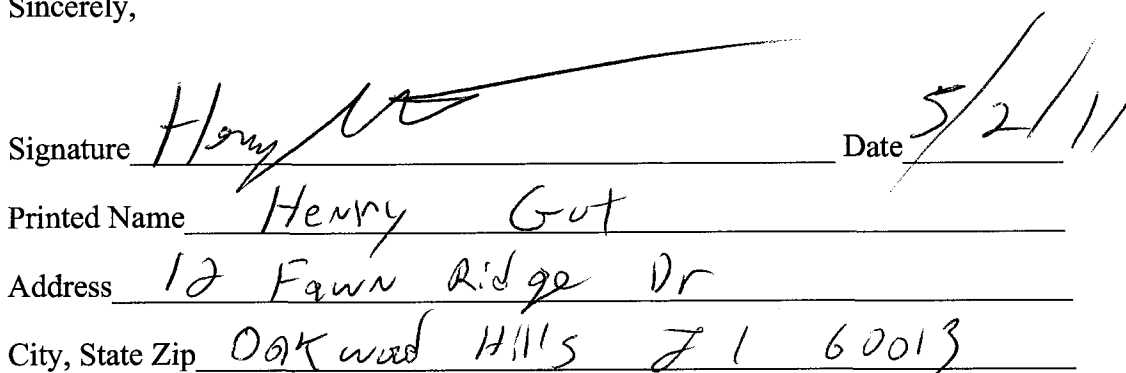 Sincerely,
Signature Henry Date 5/2/11
Printed Name Henry Gut
Address 12 Fawn Ridge Dr
City, State Zip Oakwood Hills Il 60013